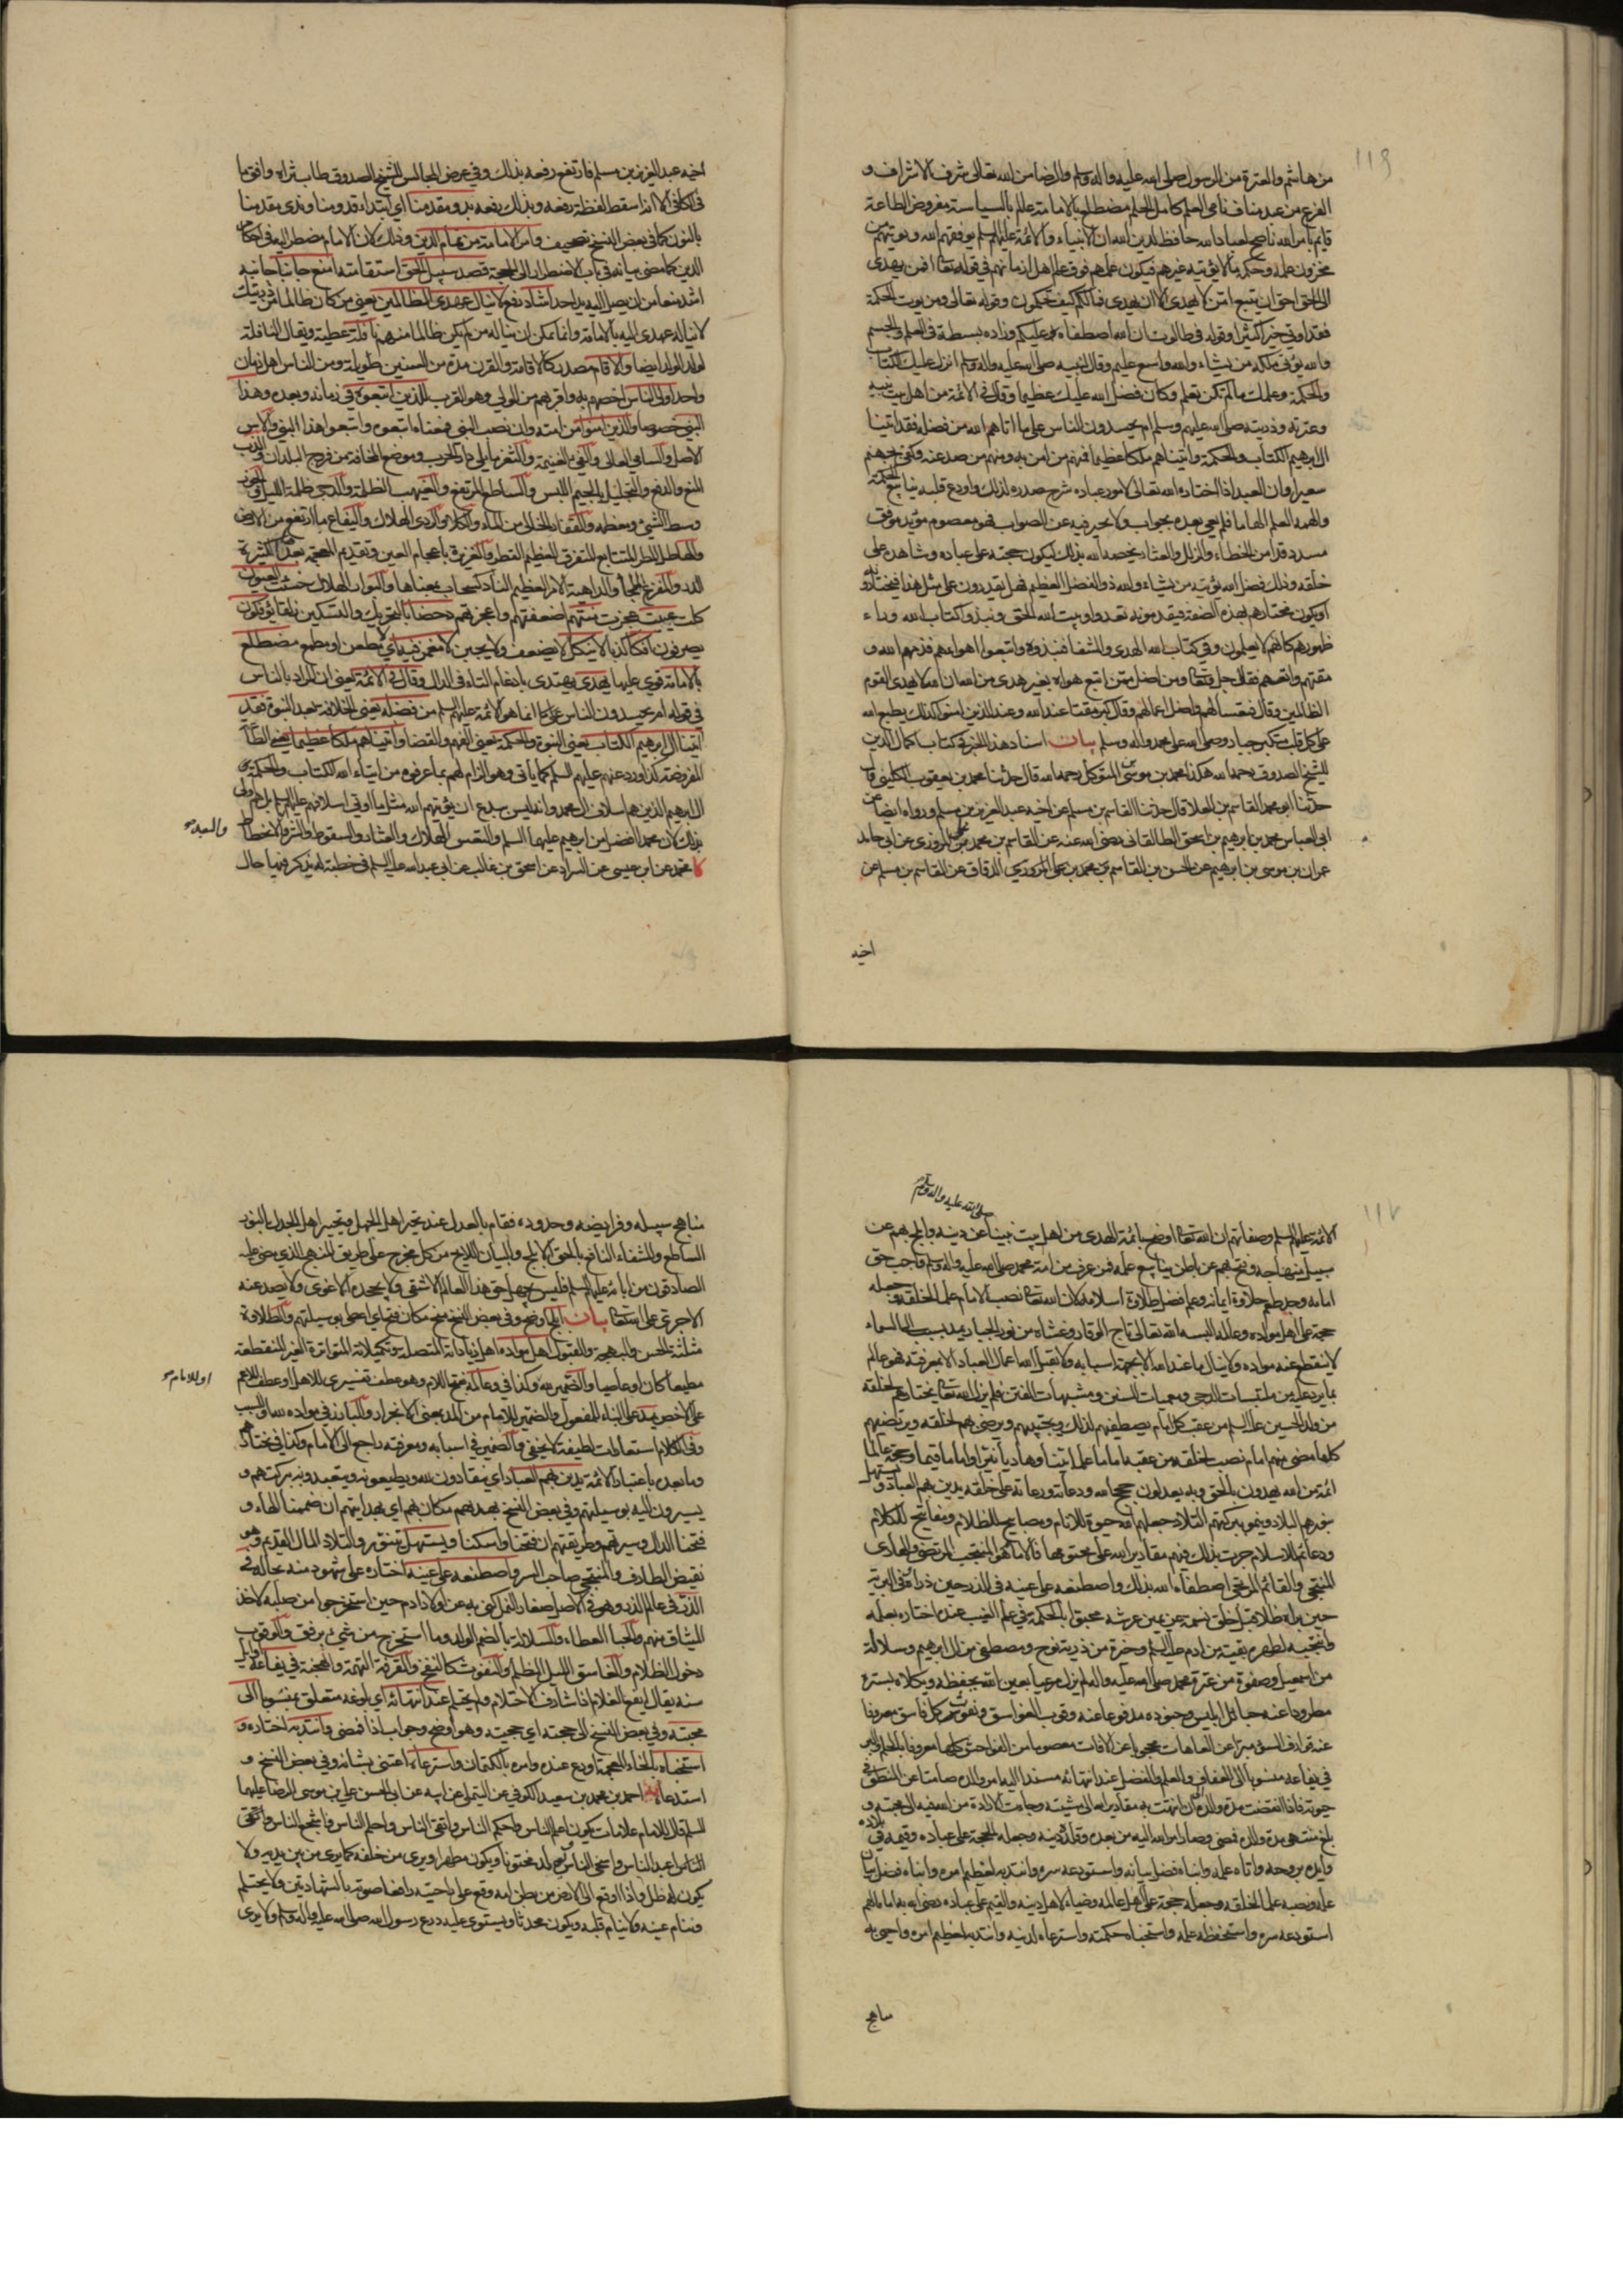 ١١٦
من هاشم والعترة من الرسول صلى الله عليه واله وسلم والرضا من الله تعالى شرف الاشراف و
الفرع من عبد مناف نامي العلم كامل الحلم مضطلع بالامامة عالم بالسياسة مفروض الطاعة
قايم بامر الله ناصح لعباد الله حافظ لدين الله ان الانبياء والائمة عليهم السلم يوفقهم الله ويؤتيهم من
مخزون علمه وحكمه ما لا يؤتيه غيرهم فيكون علمهم فوق علم اهل ازمانهم في قوله تعا افمن يهدى
الى الحق احق ان يتبع امّن لا يهدى الا ان يهدى فما لكم كيف تحكمون وقوله تعالى ومن يوت الحكمة
فقد اوتي خيرا كثيرا وقوله في طالوت ان الله اصطفاه عليكم وزاده بسطة في العلم والجسم
والله يؤتى ملكه من يشاء والله واسع عليم وقال لنبيه صلى الله عليه واله وسلم انزل عليك الكتاب
والحكمة وعلمك ما لم تكن تعلم وكان فضل الله عليك عظيما وقال في الائمة من اهل بيت نبيه
وعترته وذريته صلى الله عليهم وسلم ام يحسدون الناس على ما اتاهم الله من فضله فقد اتينا
ال ابرهيم الكتاب والحكمة واتيناهم ملكا عظيما فمنهم من امن به ومنهم من صد عنه وكفى بجهنم
سعيرا وان العبد اذا اختاره الله تعالى لامور عباده شرح صدره لذلك واودع قلبه ينابيع الحكمة
والهمه العلم الهاما فلم يعي بعده بجواب ولا يحير فيه عن الصواب فهو معصوم مؤيد موفق
مسدد قد امن الخطاء والزلل والعثار يخصه الله بذلك ليكون حجته على عباده وشاهده على
خلقه وذلك فضل الله يؤتيه من يشاء والله ذو الفضل العظيم فهل يقدرون على مثل هذا فيختارونه
او يكون مختارهم بهذه الصفة فيقدمونه تعدوا وبيت الله الحق ونبذوا كتاب الله وراء
ظهورهم كانهم لا يعلمون وفي كتاب الله الهدى والشفا فنبذوه واتبعوا اهواءهم فذمهم الله و
مقتهم واتعسهم فقال جل وتعا ومن اضل ممن اتبع هواه بغير هدى من الله ان الله لا يهدى القوم
الظالمين وقال فتعسا لهم واضل اعمالهم وقال كبر مقتا عند الله وعند الذين امنوا كذلك يطبع الله
على كل قلب متكبر جبار وصلى الله على محمد واله وسلم بيان اسناد هذا الخبر في كتاب اكمال الدين
للشيخ الصدوق رحمه الله هكذا محمد بن موسى المتوكل رحمه الله قال حدثنا محمد بن يعقوب الكليني قال
حدثنا ابو محمد القاسم بن العلا قال حدثنا القاسم بن مسلم عن اخيه عبد العزيز بن مسلم ورواه ايضا عن
ابي العباس محمد بن ابرهيم بن اسحق الطالقاني رضى الله عنه عن القاسم بن محمد بن على المروزي عن ابى حامد
عمران بن موسى بن ابرهيم عن الحسن بن القاسم بن محمد بن على المروزي الدقاق عن القاسم بن مسلم عن
اخيه
اخيه عبد العزيز بن مسلم فارتفع رفعه بذلك وفي عرض المجالس للشيخ الصدوق طاب ثراه وافق ما
في الكافي الا انه اسقط لفظة رفعه وبذلك رفعه بدو مقدمنا اي ابتداء قدومنا وندى مقدمنا
بالنون كما في بعض النسخ تصحيف وامر الامامة من تمام الدين وذلك لان الامام مضطر اليه في احكام
الدين كما مضى بيانه في باب الاضطرار الى الحجة قصد سبيل الحق استقامته امنع جانبا جانبه
اشد منعا من ان يصل اليه يد احد اشاد رفع لا ينال عهدى الظالمين يعني من كان ظالما
لا يناله عهدى اليه بالامامة وانما يمكن ان يناله من لم يكن ظالما منهم نافلة عطية ويقال النافلة
لولد الولد ايضا والاقام مصدر كالاقامة والقرن مدة من السنين طويلة ومن الناس اهل زمان
واحد اولى الناس اخصهم به واقربهم من الولي وهو القرب للذين اتبعوه في زمانه وبعده وهذا
النبي خصوصا والذين امنوا من امته وان نصب النبي فمعناه اتبعوه واتبعوا هذا النبي والاس
الاصل والسامي العالى والفيء الغنيمة والثغر ما يلي دار الحرب وموضع المخافة من فروج البلدان والذب
المنع والدفع والتجليل بالجيم اللبس والساطع المرتفع والغيهب الظلمة والدجى ظلمة الليل والجوز
وسط الشئ ومعظمه والقفار الخالى من الماء والكلاء والردى الهلاك واليفاع ما ارتفع من الارض
والهاطل المطر المتتابع المتفرق العظيم القطر والغزيرة باعجام العين وتقديم المعجمة بعدها الكثيرة
الدر والمفزع الملجأ والداهية الامر العظيم والنآد كسحاب بمعناها والبوار الهلاك خسئت العيون
كلت عييت عجزت منتهم اضعفتهم واعجزتهم دحضا بالتحريك والتسكين زلقا يؤفكون
يصرفون افكا كذبا لا ينكل لا يضعف ولا يجبن لا مغمز فيه اي لا مطعن او مطمع مضطلع
بالامامة قوي عليها يهدى يهتدى بادغام التاء في الدال وقال في الائمة يعني ان المراد بالناس
في قوله ام يحسدون الناس انما هو الائمة عليهم السلم من فضله يعني الخلافة بعد النبوة فقد
اتينا ال ابرهيم الكتاب يعني النبوة والحكمة يعني الفهم والقضا واتيناهم ملكا عظيما يعني الطاعة
المفروضة كذا ورد عنهم عليهم السلم كما ياتى وهو الزام لهم بما عرفوه من ايتاء الله الكتاب والحكمة
ال ابرهيم الذين هم اسلاف ال محمد وانه ليس ببدع ان يؤتيهم الله مثل ما اوتي اسلافهم عليهم السلم بل هم اولى
بذلك لان محمدا افضل من ابرهيم عليهما السلم والتعس الهلاك والعثار والسقوط والشر والانحطاط
والبعد
كا محمد عن ابن عيسى عن السراد عن اسحق بن غالب عن ابي عبد الله عليه السلم في خطبة له يذكر فيها حال
١١٧
صلى الله عليه واله وسلم
الائمة عليهم السلم وصفاتهم ان الله تعا اوضح بائمة الهدى من اهل بيت نبينا عن دينه وابلج بهم عن
سبيل منهاجه وفتح بهم عن باطن ينابيع علمه فمن عرف من امة محمد صلى الله عليه واله وسلم واجب حق
امامه وجد طعم حلاوة ايمانه وعلم فضل طلاوة اسلامه لان الله تعا نصب الامام علما لخلقه وجعله
حجة على اهل مواده وعالمه البسه الله تعالى تاج الوقار وغشاه من نور الجبار يمد بسبب الى السماء
لا ينقطع عنه مواده ولا ينال ما عند الله الا بجهة اسبابه ولا يقبل الله اعمال العباد الا بمعرفته فهو عالم
بما يرد عليه من ملتبسات الدجى ومعميات السنن ومشبهات الفتن فلم يزل الله تعا يختارهم لخلقه
من ولد الحسين عليه السلم من عقب كل امام يصطفيهم لذلك ويجتبيهم ويرضى بهم لخلقه ويرتضيهم
كلما مضى منهم امام نصب لخلقه من عقبه اماما علما بينا وهاديا نيرا واماما قيما وحجة عالما
ائمة من الله يهدون بالحق وبه يعدلون حجج الله ودعاته ورعاته على خلقه يدين بهم العباد ويستهل
بنورهم البلاد وينمو ببركتهم التلاد جعلهم الله حيوة للانام ومصابيح للظلام ومفاتيح للكلام
ودعائم للاسلام جرت بذلك فيهم مقادير الله على محتومها فالامام هو المنتجب المرتضى والهادى
المنتجى والقائم المرتجى اصطفاه الله بذلك واصطنعه على عينه في الذر حين ذراه وفي البرية
حين براه ظلا قبل خلق نسمة عن يمين عرشه محبوا بالحكمة في علم الغيب عنده اختاره بعلمه
وانتجبه لطهره بقية من ادم عليه السلم وخيرة من ذرية نوح ومصطفى من ال ابرهيم وسلالة
من اسمعيل وصفوة من عترة محمد صلى الله عليه واله لم يزل مرعيا بعين الله يحفظه ويكلاه بستره
مطرودا عنه حبائل ابليس وجنوده مدفوعا عنه وقوب الغواسق ونفوث كل فاسق مصروفا
عنه قوارف السوء مبرءا عن العاهات محجوبا عن الافات معصوما من الفواحش كلها معروفا بالحلم والبر
في يفاعه منسوبا الى العفاف والعلم والفضل عند انتهائه مسندا اليه امر والده صامتا عن المنطق في
حيوته فاذا انقضت مدة والده الى ان انتهت به مقادير الله الى مشيته وجاءت الارادة من الله فيه الى محبته و
بلغ منتهى مدة والده فمضى وصار امر الله اليه من بعده وقلده دينه وجعله الحجة على عباده وقيمه في بلاده
وايده بروحه واتاه علمه وانباه فضل بيانه واستودعه سره وانتدبه لعظيم امره وانباه فضل بيان
علمه ونصبه علما لخلقه وجعله حجة على اهل عالمه وضياء لاهل دينه والقيم على عباده رضى الله به اماما لهم
استودعه سره واستحفظه علمه واستخباه حكمته واسترعاه لدينه وانتدبه لعظيم امره واحيى به
مناهج
مناهج سبيله وفرايضه وحدوده فقام بالعدل عند تحير اهل الجهل وتحيير اهل الجدل بالنور
الساطع والشفاء النافع بالحق الابلج والبيان اللايح من كل مخرج على طريق المنهج الذي مضى عليه
الصادقون من ابائه عليهم السلم فليس يجهل حق هذا العالم الا شقى ولا يجحده الا غوى ولا يصد عنه
الا جري على الله تعا بيان ابلج اوضح وفي بعض النسخ منح مكان فتح اي اعطى بوسيلتهم والطلاوة
مثلثة الحسن والبهجة والقبول اهل مواده اهل زياداته المتصلة وتكميلاته المتواترة الغير المنقطعة
مطيعا كان او عاصيا والضمير لله وكذا في وعالمه بفتح اللام وهو عطف تفسيري للاهل او عطف للاعم
او للامام
على الاخص يمد على البناء للمفعول والضمير للامام من المد بعنى الانجرار والبارز في مواده
وفي الكلام استعارات لطيفة لا يخفى والضمير في اسبابه ومعرفته راجع الى الامام وكذا في يختارهم
وما بعده باعتبار الائمة يدين بهم العباد اي ينقادون لله ويطيعونه ويتعبدونه ببركتهم و
يسيرون اليه بوسيلتهم وفي بعض النسخ بهديهم مكان بهم اي بهدايتهم ان ضممنا الهاء و
فتحنا الدال وسيرتهم وطريقتهم ان فتحنا واسكنا ويستهل يتنور والتلاد المال القديم وهو
نقيض الطارف والمنتجى صاحب السر واصطنعه على عينه اختاره على شهود منه بحاله في
الذر في عالم الذر وهو في الاصل صغار النمل كنى به عن اولاد ادم حين استخرجوا من صلبه لاخذ
الميثاق منهم والحباء العطاء والسلالة بالضم الولد وما استخرج من شئ برفق والوقوب
دخول الظلام والغاسق الليل المظلم والنفوث كالنفخ والقرفة التهمة والهجنة في يفاعه اوايل
سنه يقال ايفع الغلام اذا شارف الاحتلام ولم يحتلم عند انتهائه اي بلوغه متعلق بمنسوبا الى
محبته وفي بعض النسخ الى حجته اي حجيته وهو اوضح وجواب اذا فمضى وانتدبه اختاره و
استخباه بالخاء المعجمة اودع عنده وامره بالكتمان واسترعاه اعتنى بشانه وفي بعض النسخ و
استدعاه يه احمد بن محمد بن سعيد الكوفي عن التيملي عن ابيه عن ابي الحسن علي بن موسى الرضا عليهما
السلم قال للامام علامات يكون اعلم الناس واحكم الناس واتقى الناس واحلم الناس واشجع الناس واسخى
الناس واعبد الناس ويولد مختونا ويكون مطهرا ويرى من خلفه كما يرى من بين يديه ولا
يكون له ظل واذا وقع الى الارض من بطن امه وقع على راحتيه رافعا صوته بالشهادتين ولا يحتلم
وتنام عينه ولا ينام قلبه ويكون محدثا ويستوى عليه درع رسول الله صلى الله عليه واله وسلم ولا يرى